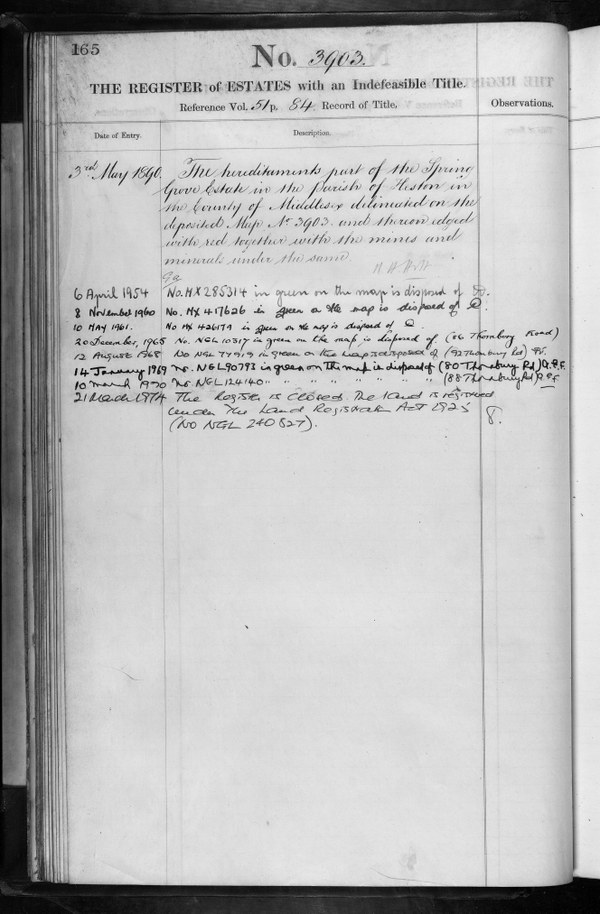 165
No. 3903.
THE REGISTER of ESTATES with an Indefeasible Title.
Reference Vol. 51 p. 84 Record of Title.
Observations.
Date of Entry.
Description.
3rd May 1890.
The hereditaments part of the Spring
Grove Estate in the Parish of Heston in
the County of Middlesex delineated on the
deposited Map No 3903. and thereon edged
with red together with the mines and
minerals under the same.
6 April 1954 No. MX 285314 in green on the map is disposed of
8 November 1960 No. MX 417626 in green on the map is disposed of
10 MAY 1961. No MX 426179 in green on the map is disposed of
20 December, 1965 No. NGL 10317 in green on the map is disposed of (86 Thornbury Road)
12 August 1968 No NGL 77919 in green on the map is disposed of (92 Thornbury Rd)
14 January 1969 No. NGL90793 in green on the map is disposed of (80 Thornbury Rd)
10 March 1970 No. NGL 124140 " " " " " " " " (88 Thornbury Rd)
21 March 1974 The Register is closed. The land is registered
under the Land Registration Act 1925
(No NGL 240827).